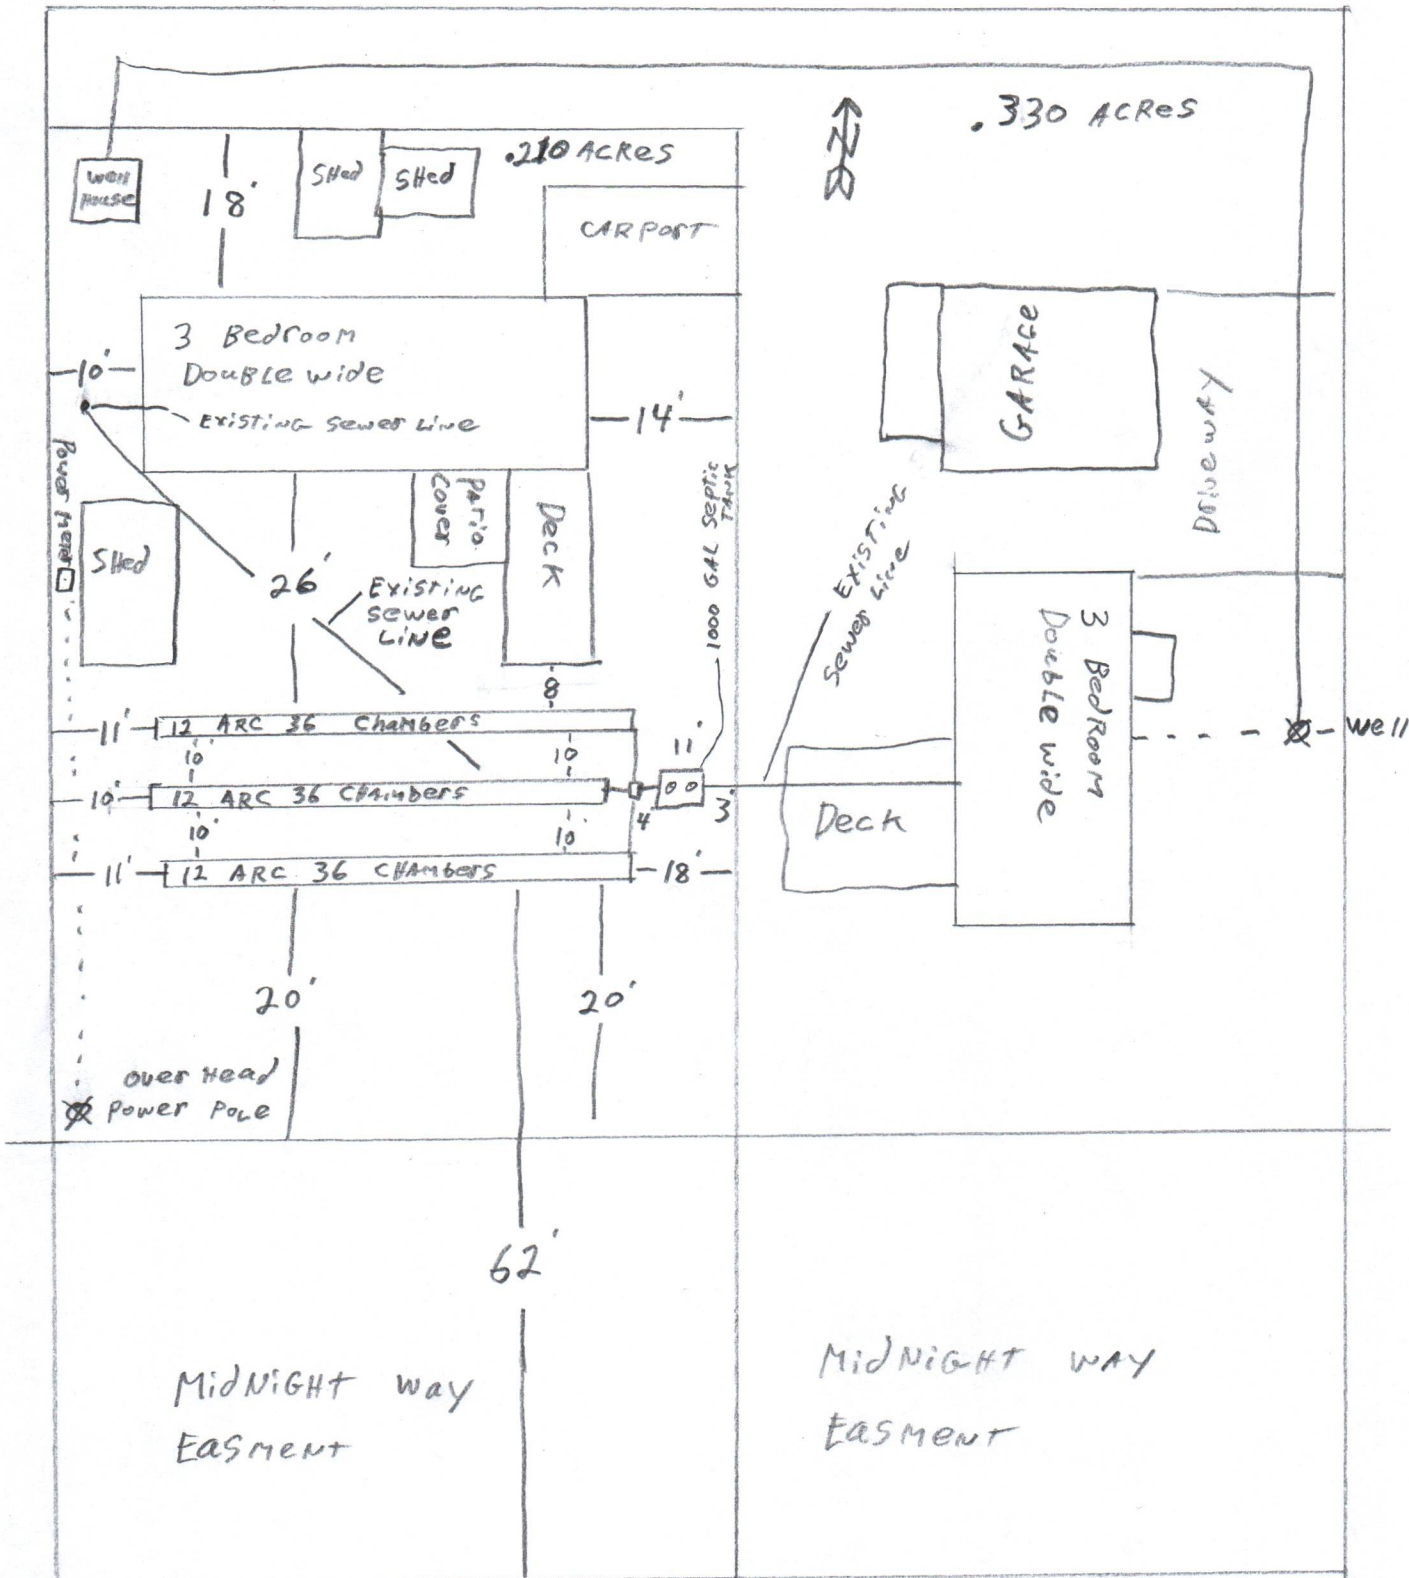 .330 ACRES
.210 ACRES
N
Well
House
18'
SHed
SHed
CARPORT
3 Bedroom
Double wide
10'
Existing sewer Line
14'
GARAGE
Driveway
Power Meter
SHed
Patio
Cover
Deck
1000 GAL Septic
TANK
Existing
Sewer Line
26'
Existing
Sewer
Line
3 BedRoom
Double wide
8
11'
12 ARC 36 Chambers
11'
well
10'
10
10'
12 ARC 36 CHAmbers
4
3'
Deck
10'
10'
11'
12 ARC 36 CHAmbers
18'
20'
20'
over Head
Power Pole
62'
MidNiGHt Way
Easment
MidNiGHt WAY
Easment